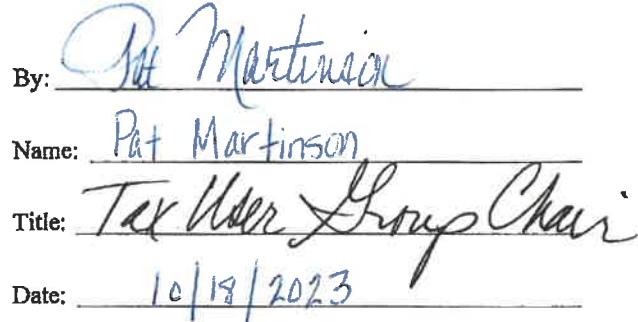 By: Pat Martinson
Name: Pat Martinson
Title: Tax User Group Chair
Date: 10/18/2023